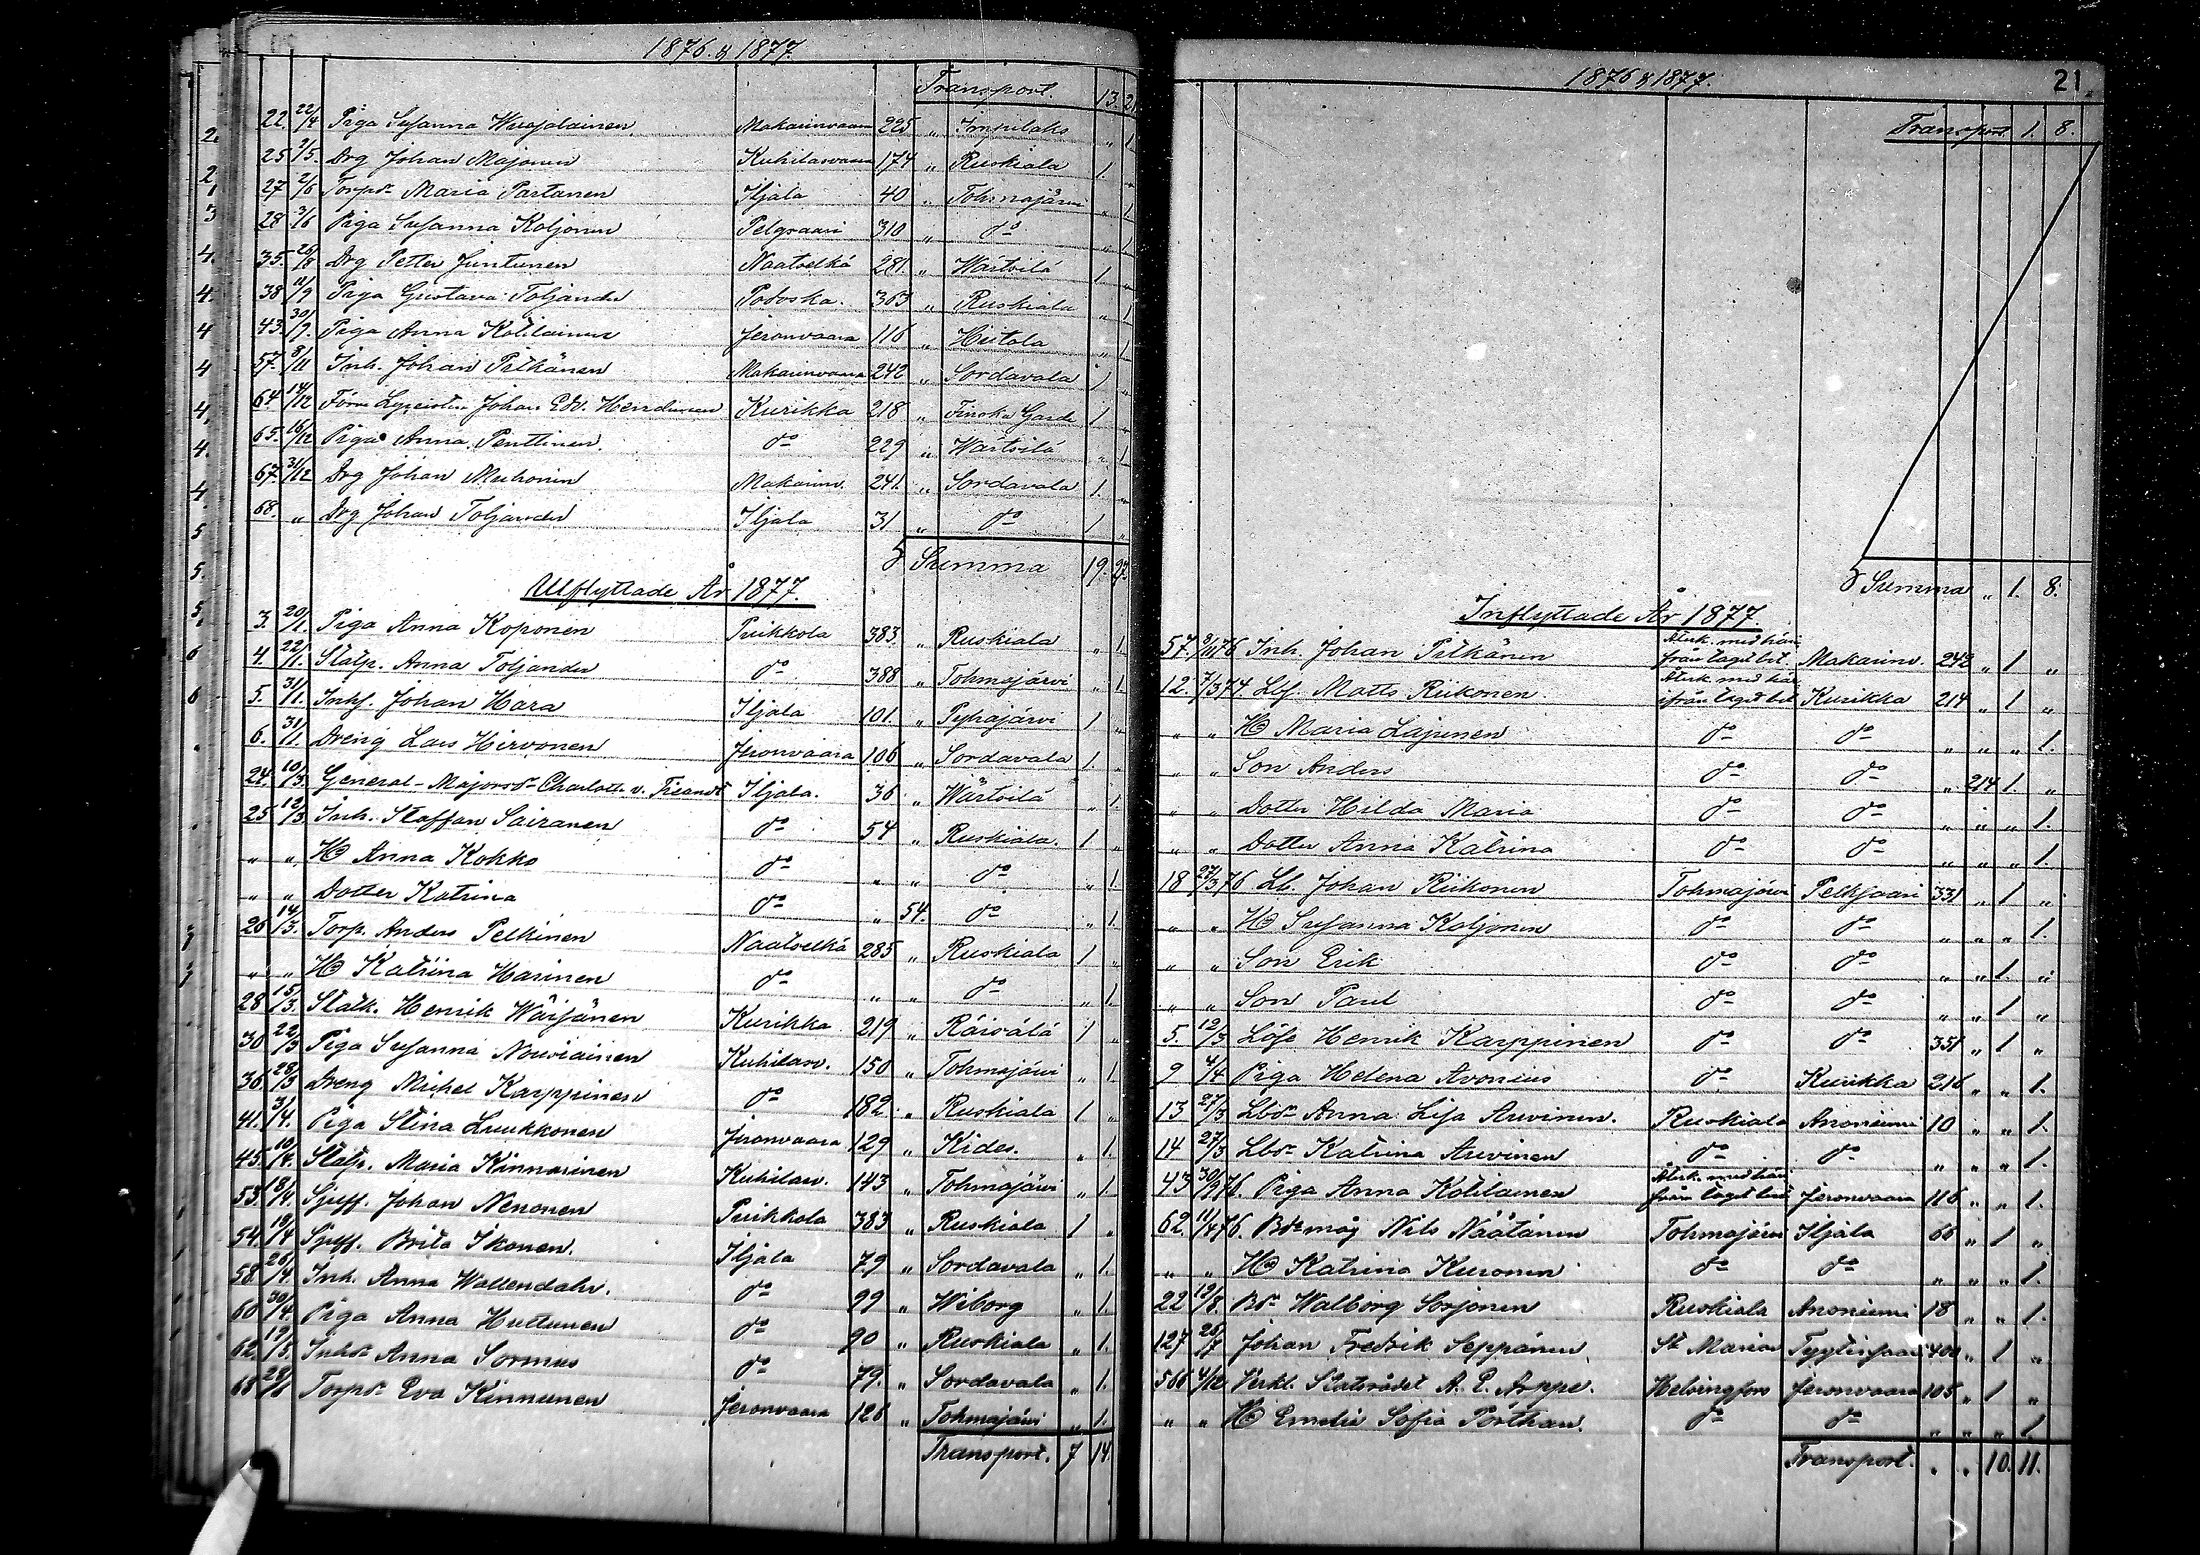 1876. & 1877.
Transport. 13. 21
22. 22/4 Piga Susanna Wuojolainen. Makarinvaara 225 „ Impilaks „ 1
25 2/5. Drg Johan Majonen Kuhilasvaara 174 „ Ruskiala 1. „
27 2/6 Torpdr Maria Partanen Iljala 40 „ Tohmajärvi „ 1
28 3/6 Piga Susanna Koljonen Pelgjaari 310 „ do „ 1
35. 25/8 Drg Petter Juntunen Naatselkä 281. „ Wärtsilä 1. „
38 11/9 Piga Gustava Toljander Potoska. 363 „ Ruskiala „ 1
43. 30/9. Piga Anna Kotilainen Jeronvaara 116 „ Hiitola „ 1
57. 8/11 Inh. Johan Pitkänen Makarinvaara 242 „ Sordavala 1 „
64. 14/12 Förre Lyceisten Johan Edv. Kurikka 218 „ Finska Garde 1 „
65. 16/12 Piga Anna Penttinen. do 229 „ Wärtsilä „ 1
67. 31/12 Drg Johan Muhonen Makarinv. 241. „ Sordavala 1. „
68. „ Drg Johan Toljander Iljala 31 „ do 1 „
Summa 19. 27.
Utflyttade År 1877.
3. 20/1. Piga Anna Koponen Puikkola 383. „ Ruskiala „ 1.
4. 22/1. Statp. Anna Toljander do 388 „ Tohmajärvi „ 1.
5. 31/1. Inhs. Johan Hara Iljala 101. „ Pyhäjärvi 1 „
6. 31/1. Dreng Lars Hirvonen Jeronvaara 106 „ Sordavala 1 „
24. 10/3. General-Majorsdr Charlotte v. Iljala. 36 „ Wärtsilä „ 1.
25 12/3. Inh. Staffan Sairanen do 54 „ Ruskiala. 1 „
„ „ H Anna Kokko do „ „ do „ 1.
„ „ Dotter Katrina do „ 54. do „ 1.
26 14/3. Torp. Anders Pelkinen Naatselkä 285 „ Ruskiala 1 „
„ „ H Katrina Harinen do „ „ do „ 1.
28 15/3. Statk. Henrik Wäisänen Kurikka 219 „ Räisälä 1 „
30 22/3 Piga Susanna Nouviainen Kuhilasv. 150 „ Tohmajärvi „ 1.
36. 28/3 Dreng Mickel Karppinen do 182. „ Ruskiala 1 „
41. 3/4. Piga Stina Luukkonen Jeronvaara 129 „ Kides. „ 1.
45. 10/4. Statp. Maria Kinnarinen Kuhilasv. 143 „ Tohmajärvi „ 1.
53. 18/4. Spff. Johan Nenonen Puikkola 383 „ Ruskiala 1 „
54. 19/4 Spff. Brita Ikonen. Iljala 79 „ Sordavala „ 1.
58. 26/4. Inh. Anna Wallendahr. do 99 „ Wiborg „ 1.
60. 30/4. Piga Anna Huttunen do 90 „ Ruskiala „ 1.
62. 19/5. Inhdr Anna Sormus do 79. „ Sordavala „ 1.
68 29/6 Torpdr Eva Kinnunen Jeronvaara 126 „ Tohmajärvi „ 1.
Transport. 7 14.
1876 & 1877.
21.
Transport 1. 8.
Summa „ 1. 8.
Inflyttade År 1877.
57. 8/11 76 Inh. Johan Pitkänen Återk. med häri från taget bet. Makarinv. 242 „ 1 „
12. 7/3 74 Lbf. Matts Riikonen. Återk. med här ifrån taget bet Kurikka 214 „ 1 „
„ „ H Maria Lajunen do do „ „ „ 1.
„ „ Son Anders do do „ 214 1. „
„ „ Dotter Hilda Maria do do „ „ „ 1.
„ „ Dotter Anna Katrina do do „ „ „ 1.
18 27/3 76 Lb. Johan Riikonen Tohmajärvi Pelkjaari 331 „ 1 „
„ „ H Susanna Koljonen do do „ „ „ 1.
„ „ Son Erik do do „ „ 1. „
„ „ Son Paul do do „ „ 1 „
5. 12/3 Lösk Henrik Karppinen do do 351 „ 1 „
9 4/4 Piga Helena Avonius do Kurikka 216 „ „ 1.
13 27/3 Lbdr Anna Lisa Arvinen. Ruskiala Anoniemi 10 „ „ 1.
14 27/3 Lbdr Katrina Arvinen do do „ „ „ 1.
43 30/9 76. Piga Anna Kotilainen Återk. med häri från taget bet Jeronvaara 116 „ „ 1.
62. 11/4 76. Bdemåg Nils Näätänen Tohmajärvi Iljala 66 „ 1 „
„ „ H Katrina Kuronen do do „ „ „ 1.
22 12/8. Bdr Walborg Sorjonen Ruskiala Anoniemi 18 „ „ 1.
127 26/7 Johan Fredrik Seppänen St Marian 400 „ 1 „
566 4/12 Verkl. Statsrådet A. E. Arppe. Helsingfors Jeronvaara 105 „ 1 „
„ „ H Emelie Sofia Porthan. do do „ „ „ 1.
Transport. „ „ 10. 11.